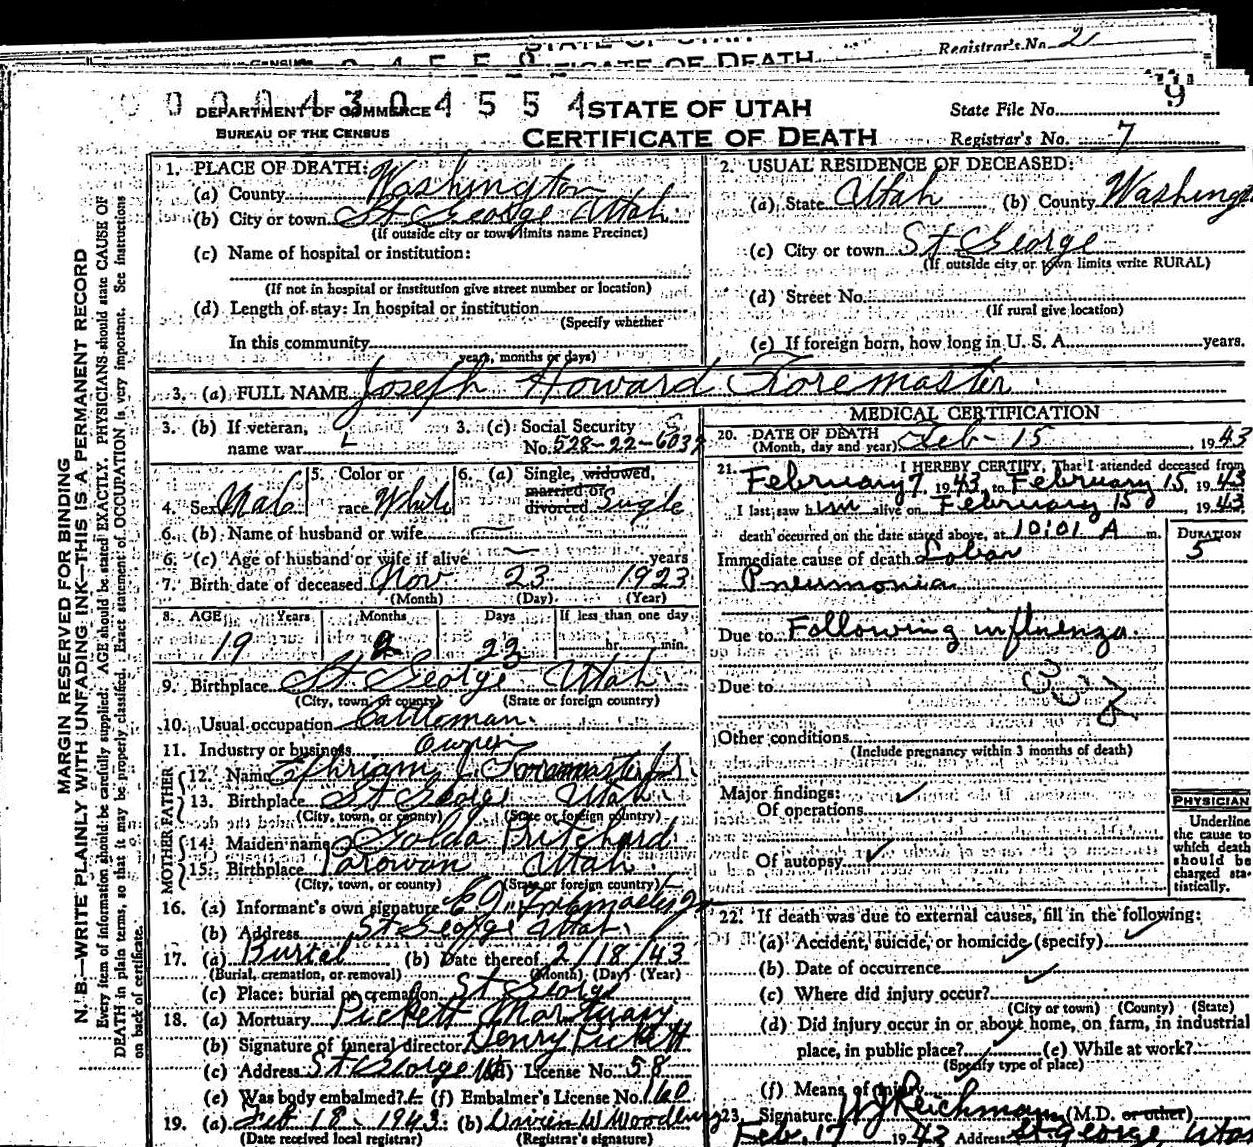 STATE OF UTAH
Registrar's No. 2
CENSUS
CERTIFICATE OF DEATH
0 0 0 0 4 3 0 4 5 5 4
9
DEPARTMENT OF COMMERCE
BUREAU OF THE CENSUS
STATE OF UTAH
CERTIFICATE OF DEATH
State File No.
Registrar's No. 7
MARGIN RESERVED FOR BINDING
N. B.—WRITE PLAINLY WITH UNFADING INK—THIS IS A PERMANENT RECORD
Every item of information should be carefully supplied. AGE should be stated EXACTLY. PHYSICIANS should state CAUSE OF
DEATH in plain terms, so that it may be properly classified. Exact statement of OCCUPATION is very important. See instructions
on back of certificate.
1. PLACE OF DEATH:
(a) County Washington
(b) City or town St George Utah
(If outside city or town limits name Precinct)
(c) Name of hospital or institution:
(If not in hospital or institution give street number or location)
(d) Length of stay: In hospital or institution
(Specify whether
In this community
years, months or days)
2. USUAL RESIDENCE OF DECEASED:
(a) State Utah (b) County Washing
(c) City or town St George
(If outside city or town limits write RURAL)
(d) Street No.
(If rural give location)
(e) If foreign born, how long in U. S. A. years.
3. (a) FULL NAME Joseph Howard Foremaster
3. (b) If veteran,
name war
3. (c) Social Security
No. 528-22-6032
4. Sex Male
5. Color or
race White
6. (a) Single, widowed,
married or
divorced Single
6. (b) Name of husband or wife
6. (c) Age of husband or wife if alive years
7. Birth date of deceased Nov 23 1923
(Month) (Day) (Year)
8. AGE Years Months Days If less than one day
19 2 23 hr. min.
9. Birthplace St George Utah
(City, town, or county) (State or foreign country)
10. Usual occupation Cattleman
11. Industry or business Owner
FATHER
12. Name Ephriam J. Foremaster Jr.
13. Birthplace St George Utah
(City, town, or county) (State or foreign country)
MOTHER
14. Maiden name Golda Pritchard
15. Birthplace Parowan Utah
(City, town, or county) (State or foreign country)
16. (a) Informant's own signature E J. Foremaster Jr
(b) Address St George Utah
17. (a) Burial (b) Date thereof 2/18/43
(Burial, cremation, or removal) (Month) (Day) (Year)
(c) Place: burial or cremation St George
18. (a) Mortuary Pickett Mortuary
(b) Signature of funeral director Henry Pickett
(c) Address St George Ut (d) License No. 58
(e) Was body embalmed? (f) Embalmer's License No. 160
19. (a) Feb 18 1943 (b) W Woodbury
(Date received local registrar) (Registrar's signature)
MEDICAL CERTIFICATION
20. DATE OF DEATH
(Month, day and year) Feb-15, 1943
21. I HEREBY CERTIFY, That I attended deceased from
February 7, 1943, to February 15, 1943
I last saw him alive on February 15, 1943
death occurred on the date stated above, at 10:01 A m.
DURATION
Immediate cause of death Lobar 5
Pneumonia
Due to Following influenza
33
Due to
Other conditions
(Include pregnancy within 3 months of death)
Major findings:
Of operations
Of autopsy
PHYSICIAN
Underline
the cause to
which death
should be
charged sta-
tistically.
22. If death was due to external causes, fill in the following:
(a) Accident, suicide, or homicide (specify)
(b) Date of occurrence
(c) Where did injury occur?
(City or town) (County) (State)
(d) Did injury occur in or about home, on farm, in industrial
place, in public place? (e) While at work?
(Specify type of place)
(f) Means of injury
23. Signature W J Reichmann (M.D. or other)
Feb. 17 1943 Address St George Uta